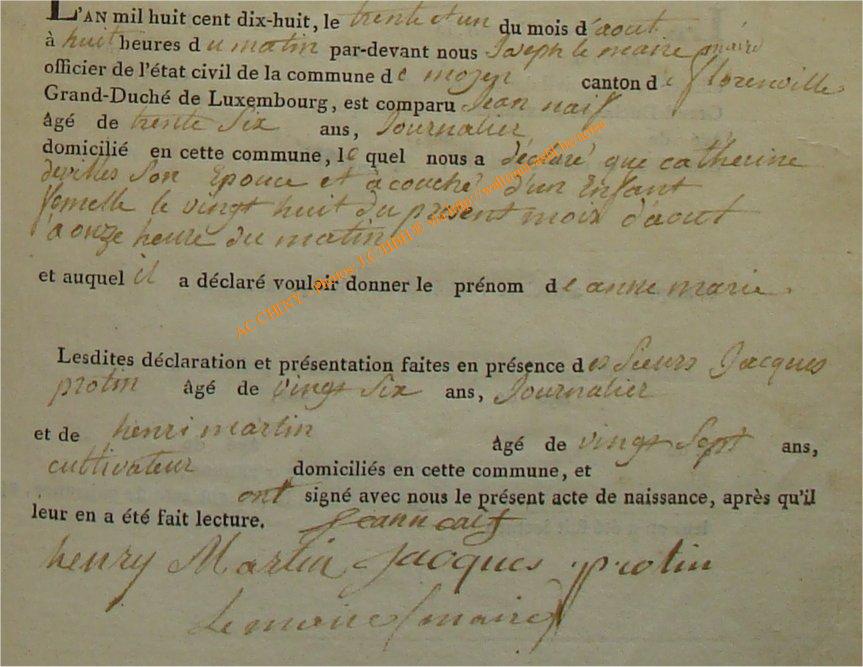 L'AN mil huit cent dix-huit, le trente et un du mois d'aout
à huit heures du matin par-devant nous Joseph le maire maire
officier de l'état civil de la commune de moyen canton de florenville
Grand-Duché de Luxembourg, est comparu Jean
âgé de trente Six ans, Journalier
domicilié en cette commune, le quel nous a déclaré que catherine
devilles Son Epouce et acouché d'un Enfant
femelle le vingt huit du present mois d'aout
a onze heure du matin
et auquel il a déclaré vouloir donner le prénom de anne marie.
Lesdites déclaration et présentation faites en présence des Sieurs Jacques
protin âgé de vingt Six ans, Journalier
et de henri martin âgé de vingt Sept ans,
cultivateur domiciliés en cette commune, et
ont signé avec nous le présent acte de naissance, après qu'il
leur en a été fait lecture.
henry Martin Jacques protin
Lemaire maire
AC CHINY - Photos J.C